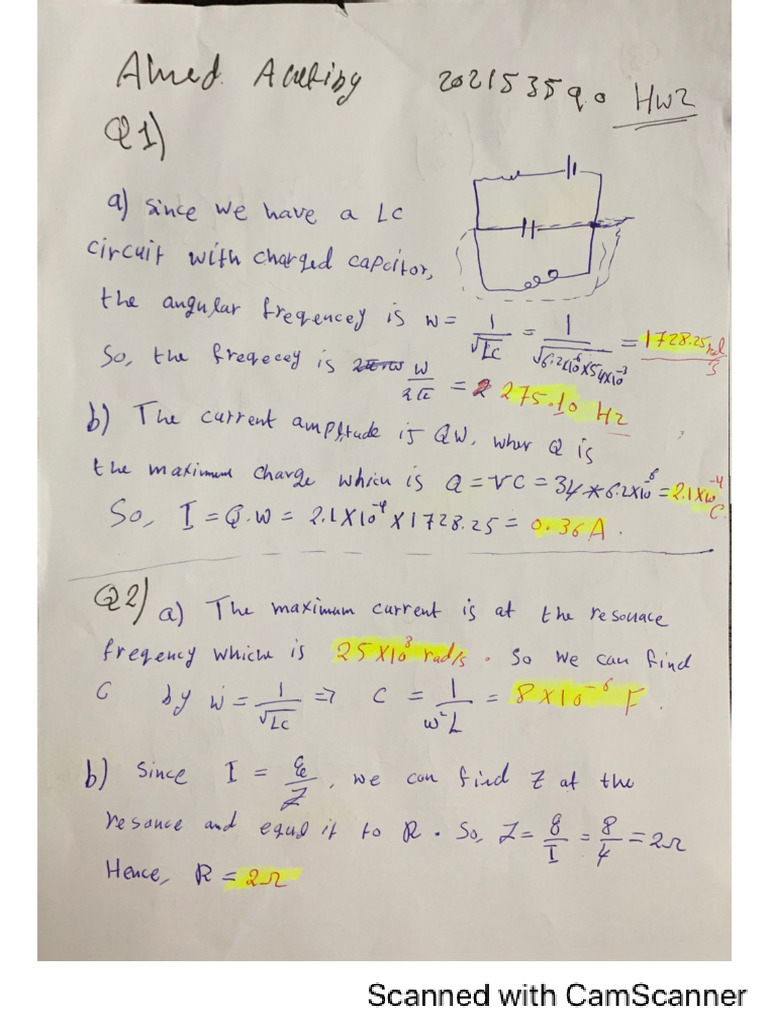 Ahmed 202153590 HW2
Q1)
a) Since we have a LC
circuit with charged capcitor,
the angular freqencey is w = 1/√LC = 1/√6.2x10^-6 x 54x10^-3 = 1728.25 rad/s
So, the freqecey is w/2π = 275.10 Hz
b) The current amplitude is QW, wher Q is
the maximum charge which is Q = VC = 34 * 6.2x10^-6 = 2.1x10^-4 C
So, I = Q.W = 2.1x10^-4 x 1728.25 = 0.36 A.
Q2) a) The maximum current is at the resonace
freqency which is 25x10^3 rad/s. So we can find
C by w = 1/√LC => C = 1/w²L = 8x10^-6 F.
b) Since I = ε/Z, we can find Z at the
resonce and equal it to R. So, Z = 8/I = 8/4 = 2Ω
Hence, R = 2Ω
Scanned with CamScanner